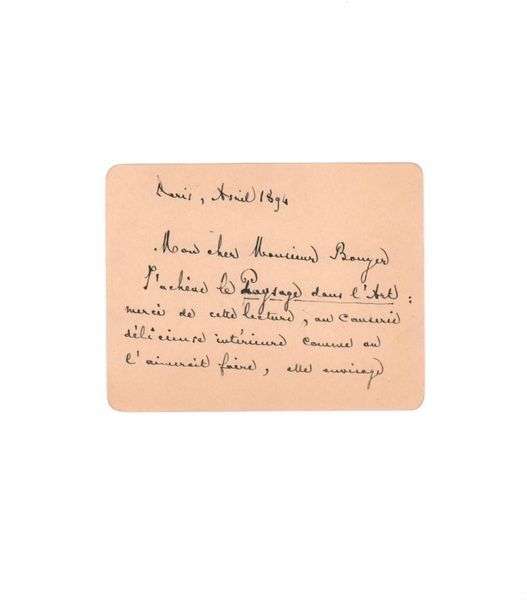 Paris, Avril 1894
Mon cher Monsieur Bouyer
J'achève le Paysage dans l'Art :
merci de cette lecture, ou causerie
délicieuse intérieure comme on
l'aimerait faire, elle envisage